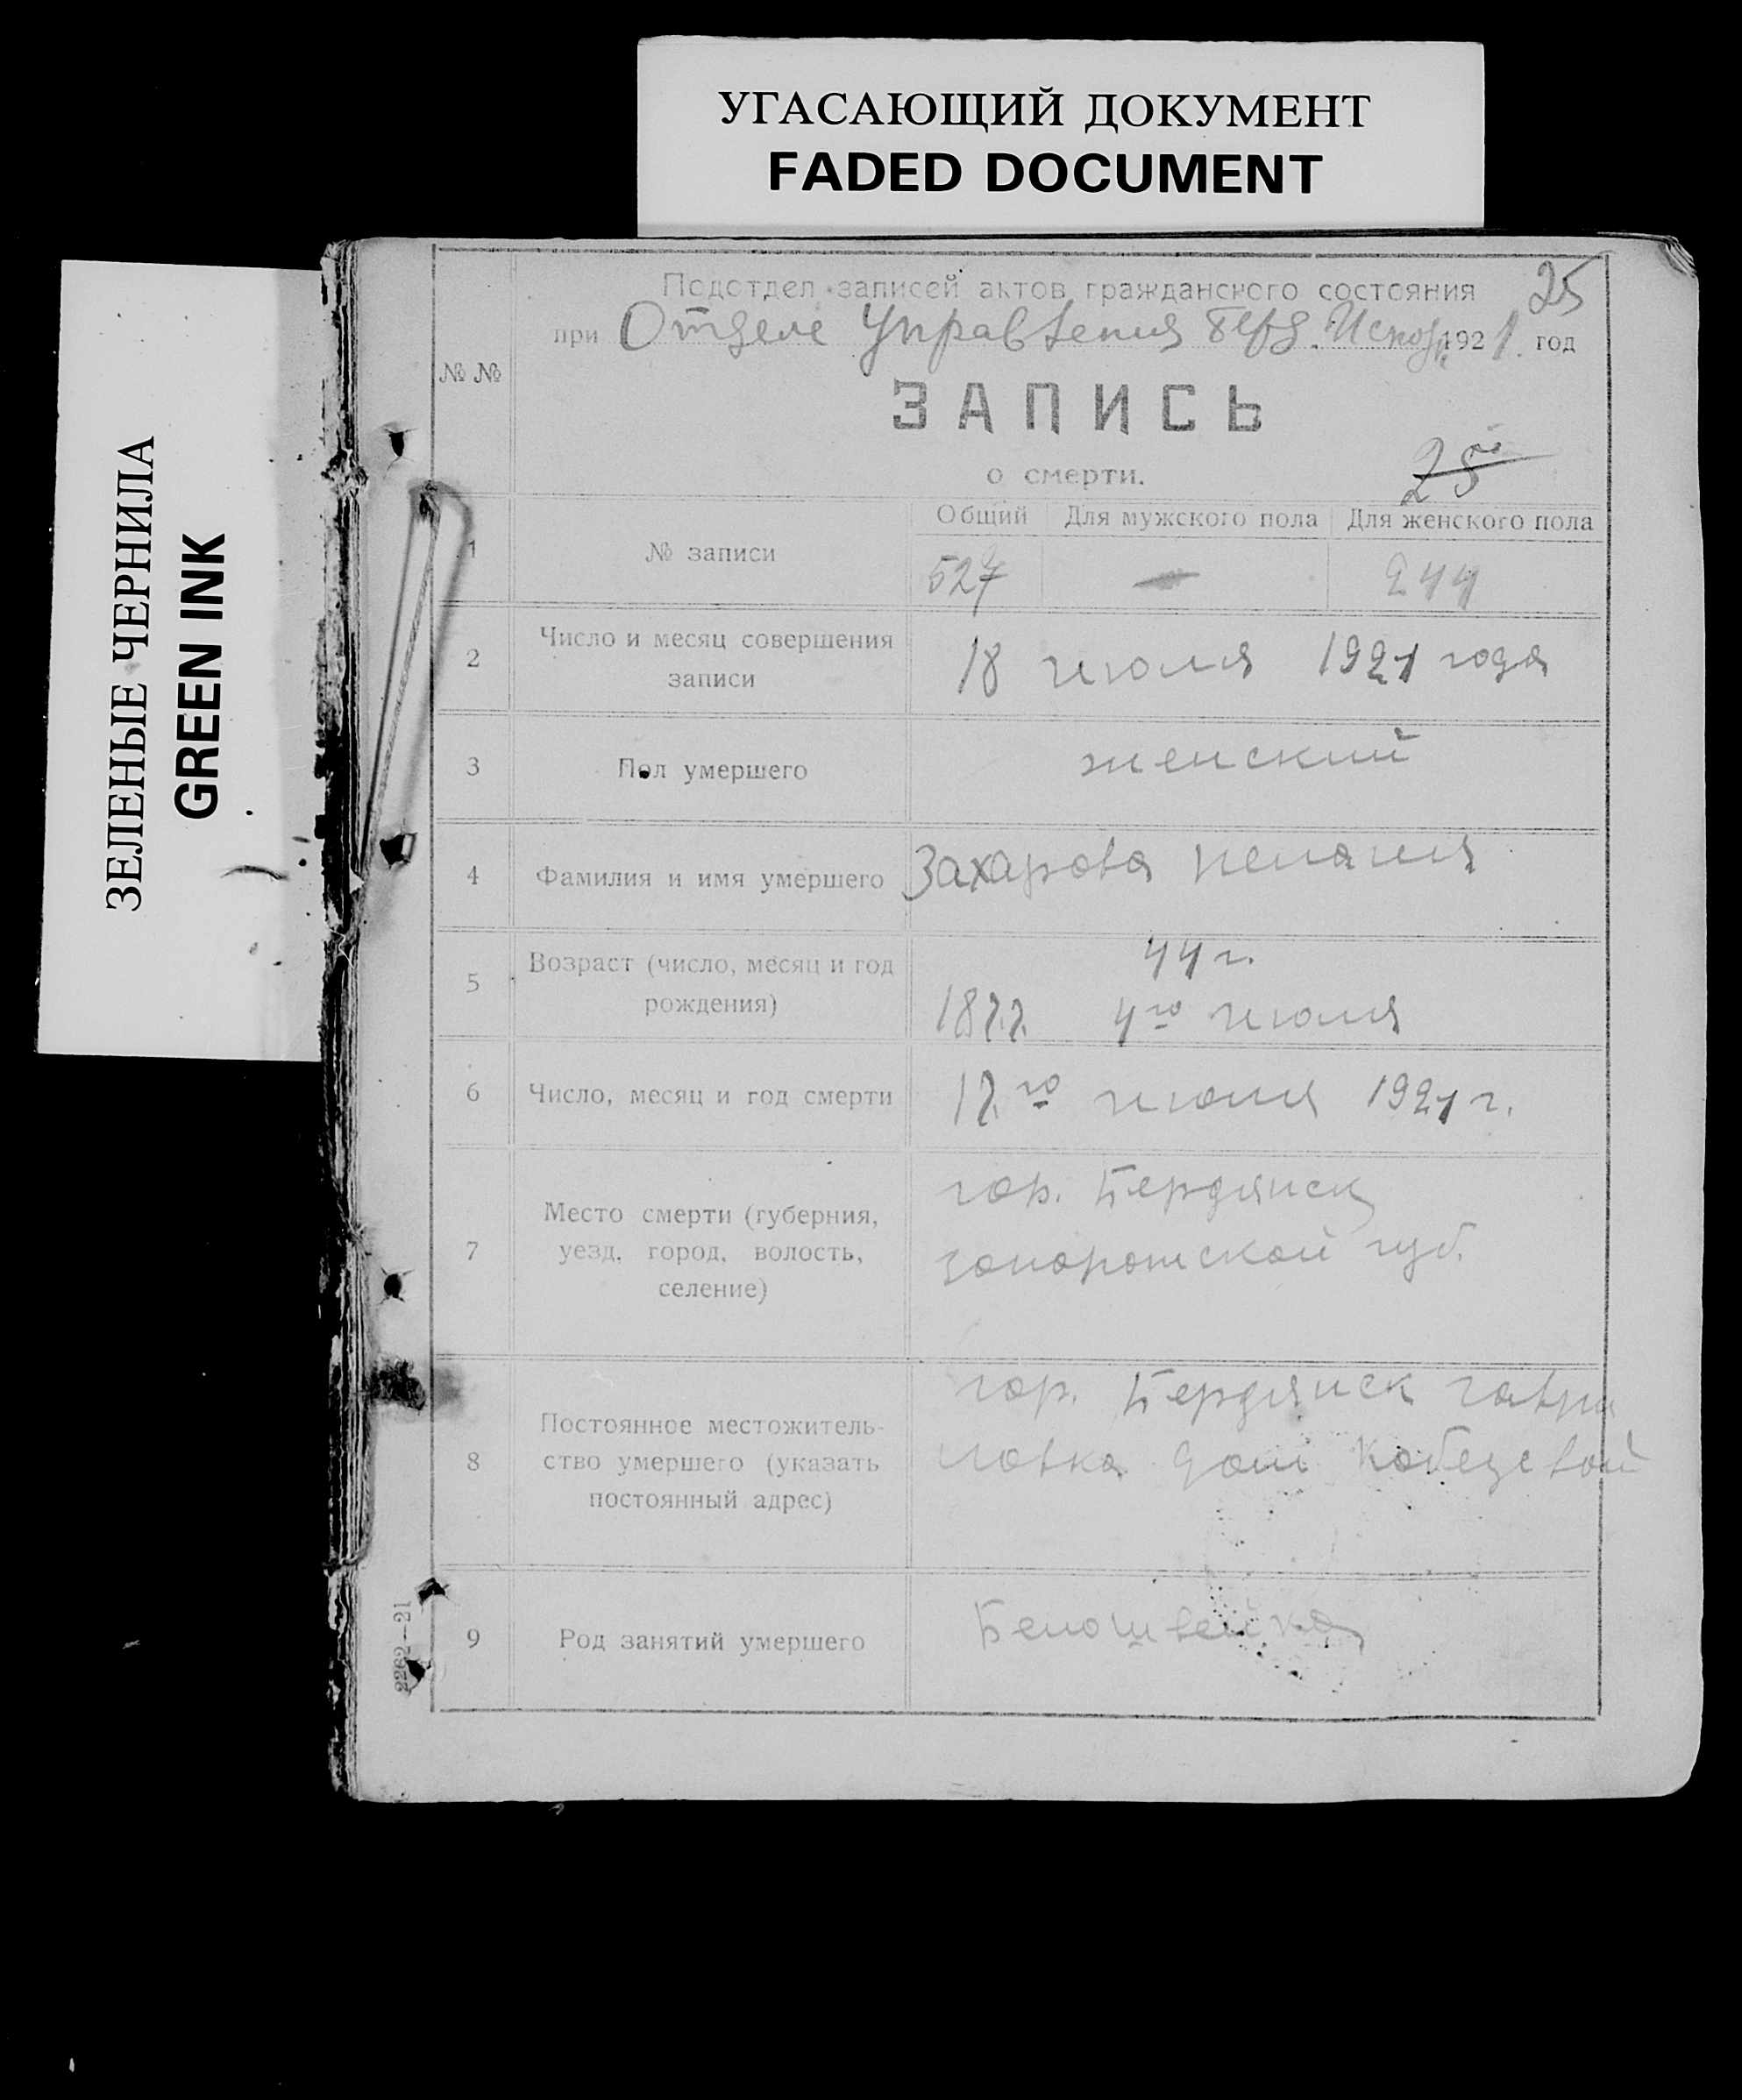 УГАСАЮЩИЙ ДОКУМЕНТ
FADED DOCUMENT
ЗЕЛЕНЫЕ ЧЕРНИЛА
GREEN INK
25
Подотдел записей актов гражданского состояния
при Отделе Управления Берд. Испол. 1921 год
№ №
ЗАПИСЬ
о смерти.
25
Общий Для мужского пола Для женского пола
1 № записи 527 — 244
2 Число и месяц совершения
записи
18 июля 1921 года
3 Пол умершего женский
4 Фамилия и имя умершего Захарова Пелагия
44 г.
5 Возраст (число, месяц и год
рождения)
1877. 4го июля
6 Число, месяц и год смерти 17го июля 1921 г.
7 Место смерти (губерния,
уезд, город, волость,
селение)
гор. Бердянск
Запорожской губ.
8 Постоянное местожитель-
ство умершего (указать
постоянный адрес)
гор. Бердянск Гаври
ловка дом
9 Род занятий умершего Белошвейка
2262—21